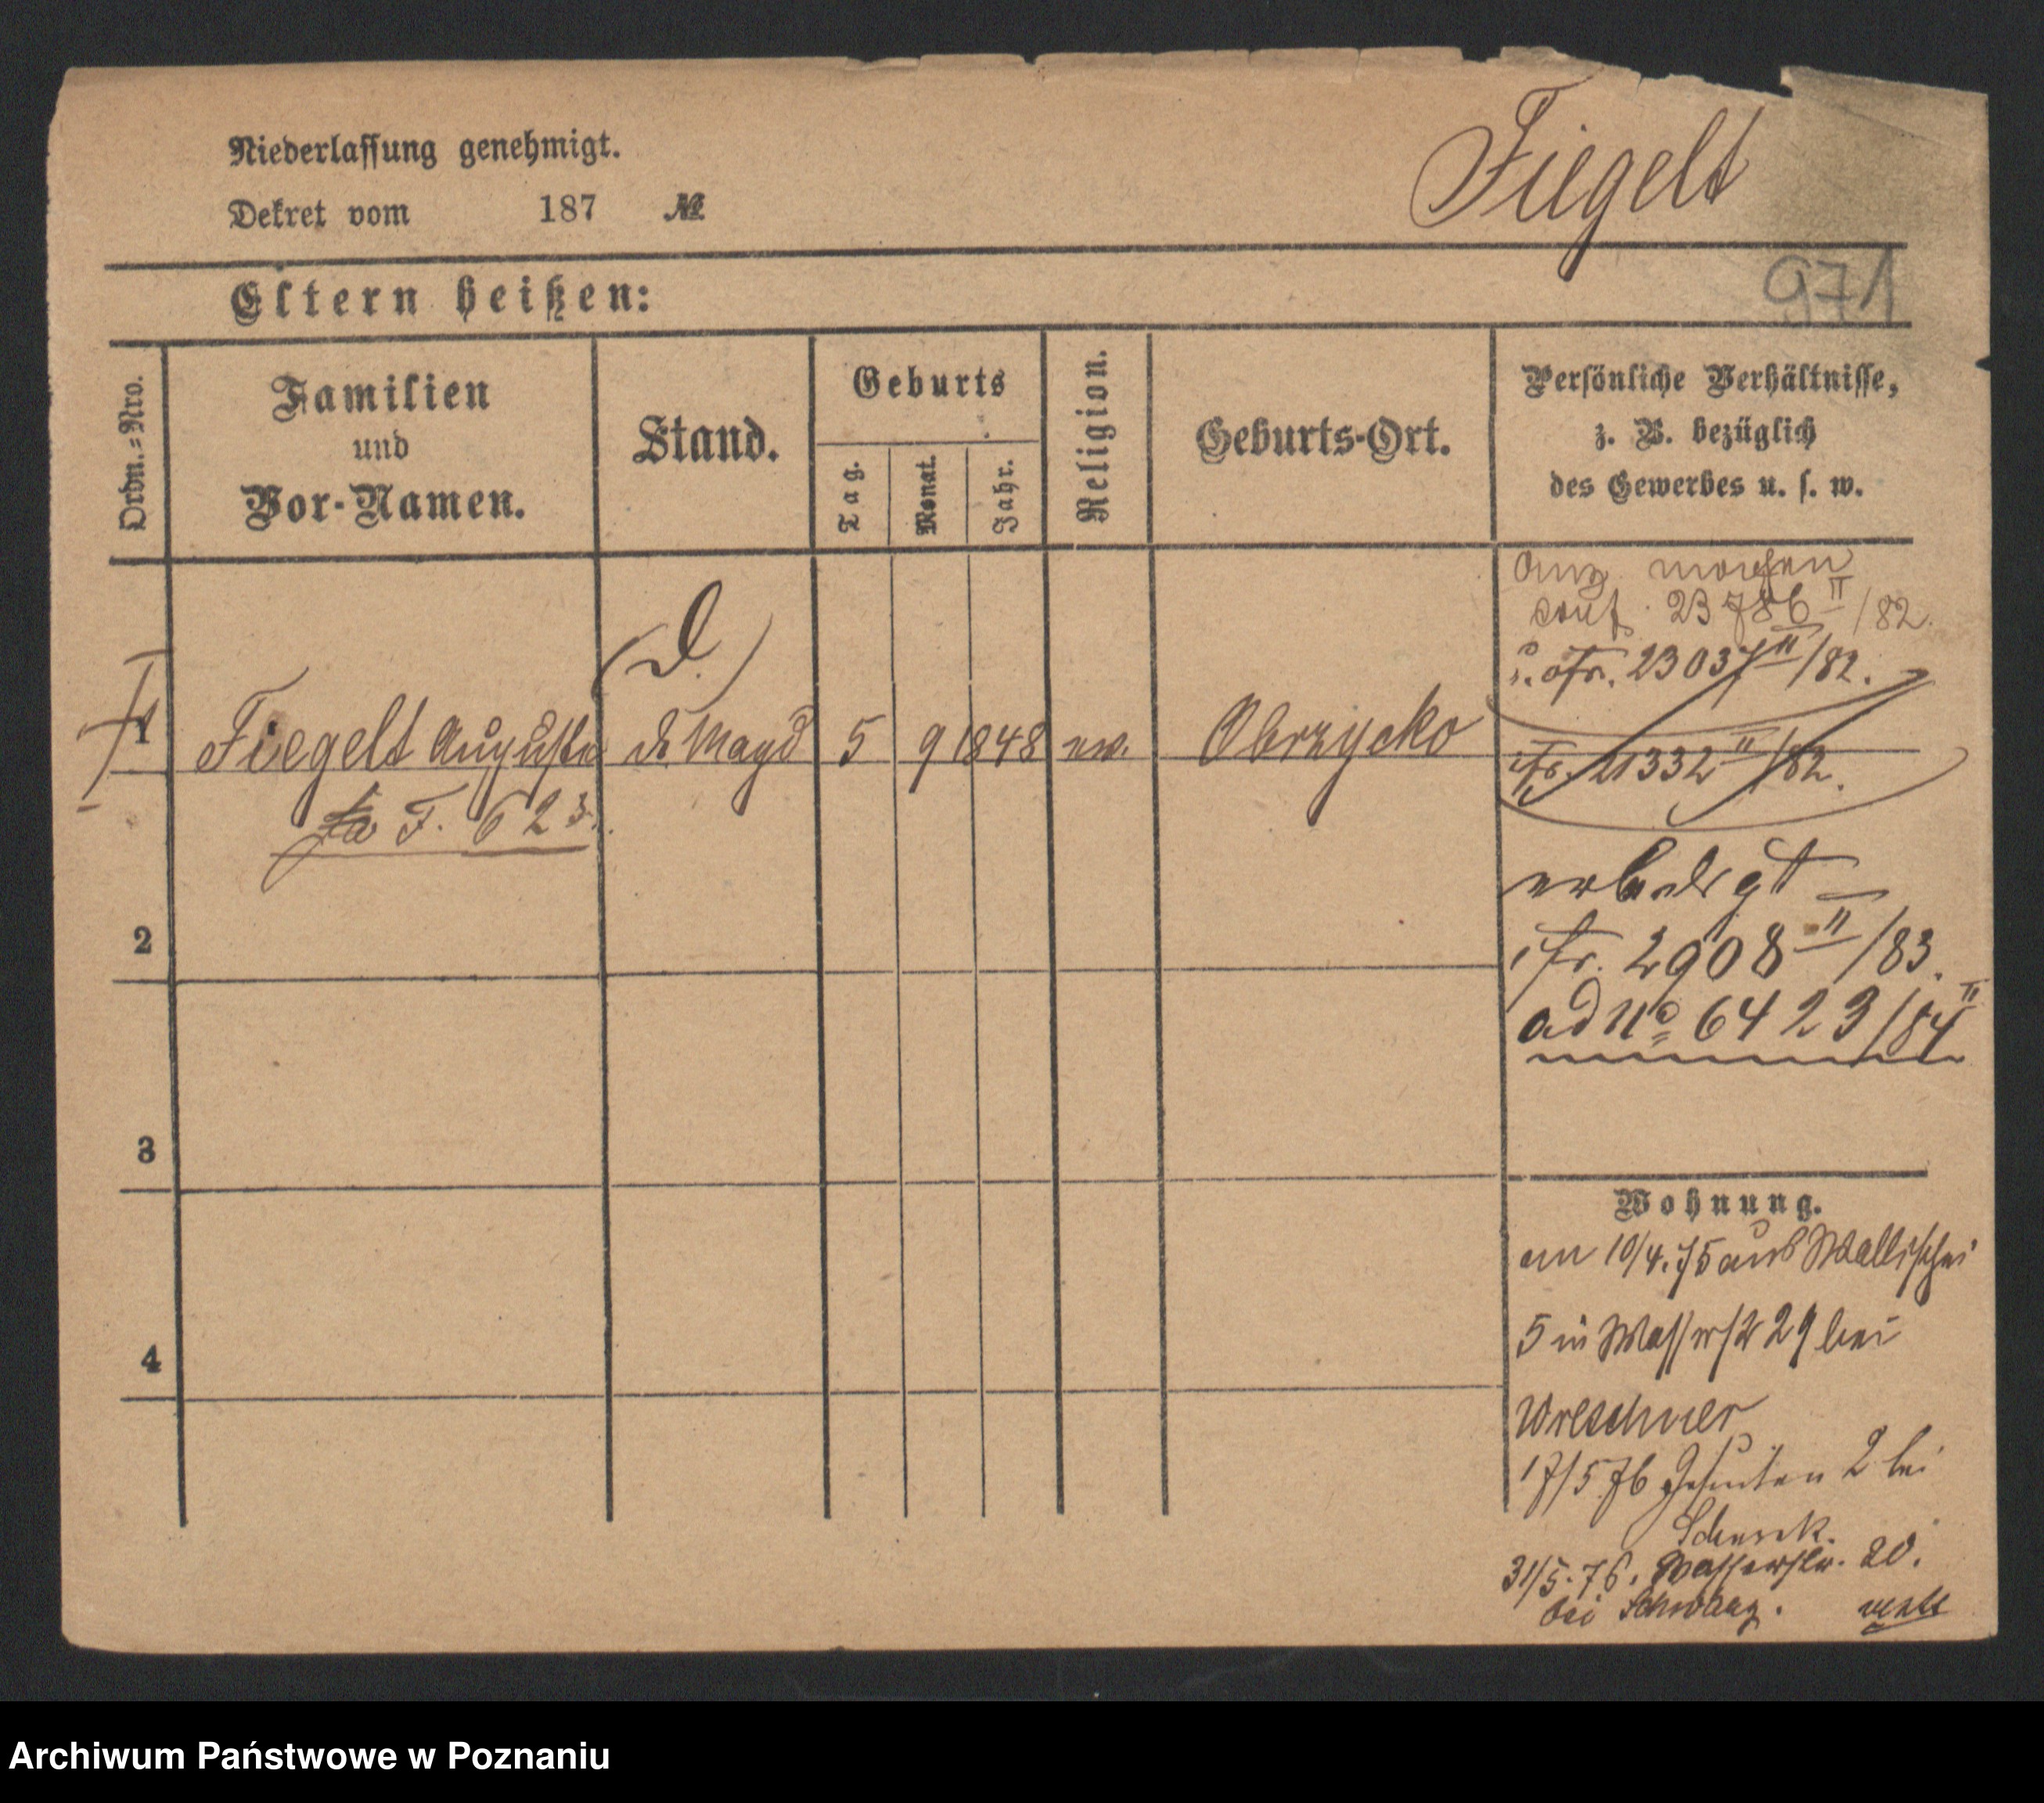 Niederlassung genehmigt.
Dekret vom 187 №
Fiegelt
Eltern heißen:
971
Ordn.=Nro.
Familien
und
Vor-Namen.
Stand.
Geburts
Tag.
Monat.
Jahr.
Religion.
Geburts-Ort.
Persönliche Verhältnisse,
z. B. bezüglich
des Gewerbes u. s. w.
23786 II/82.
23037 II/82.
(D.)
1 Fiegelt Auguste d. Magd 5 9 1848 ev. Obrzycko
21332 II/82.
F. 623.
erledigt
2908 II/83.
ad No 6423/84 II
2
3
4
Wohnung.
am 10/4.75 aus Wallischei
5 in Wasserstr 29 bei
Wreschner
17/5 76 Jesuiten 2 bei
31/5.76. Wasserstr. 20.
bei
Archiwum Państwowe w Poznaniu